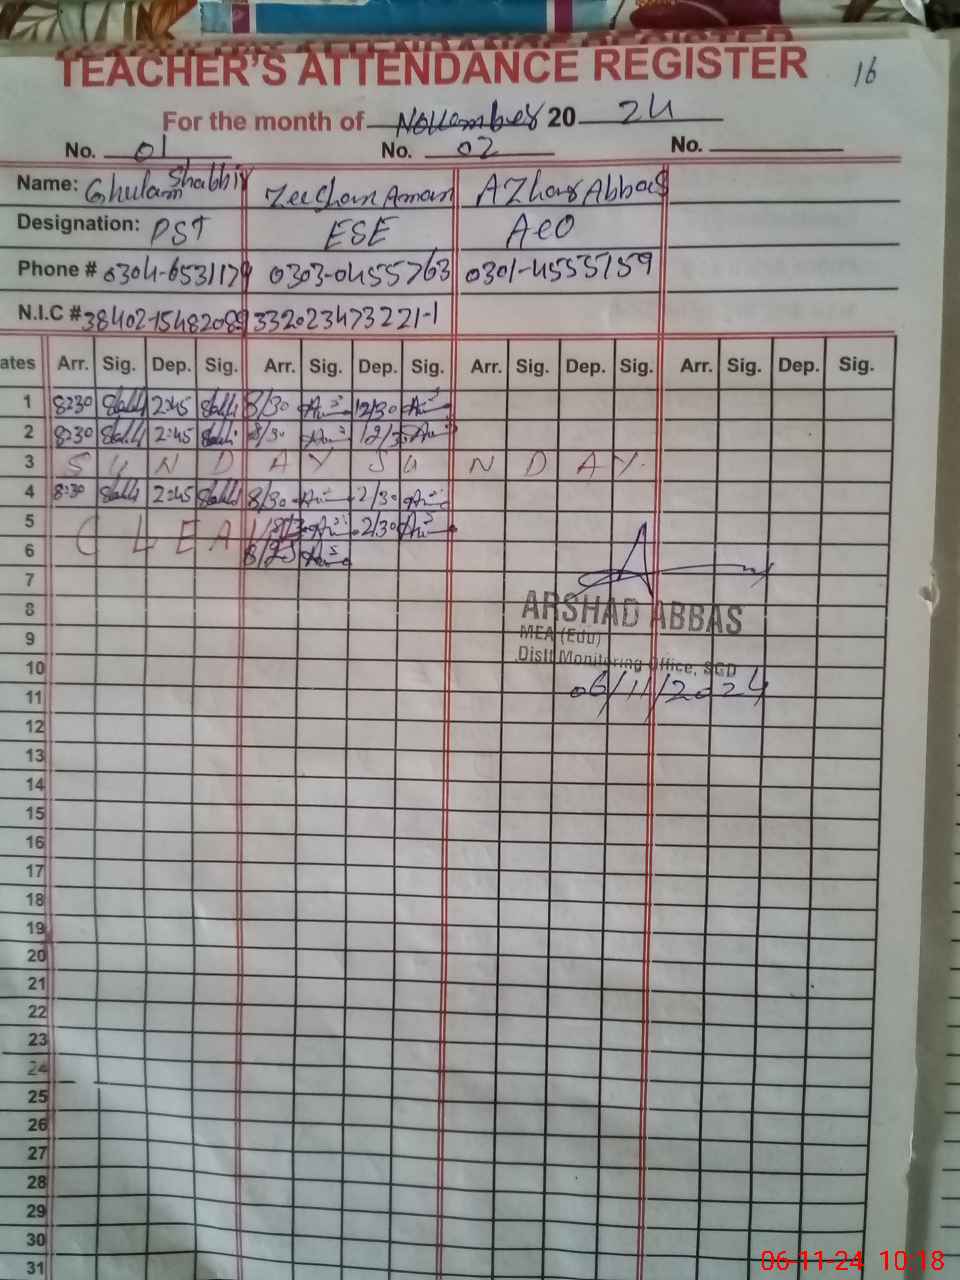 TEACHER'S ATTENDANCE REGISTER
16
For the month of November 20 24
No. 01 No. 02 No.
Name: Ghulam Shabbir Zeeshan Aman Azhar Abbas
Designation: PST ESE AeO
Phone # 0304-6531179 0303-0455763 0301-4553759
N.I.C # 3840215482089 332023473221-1
ates Arr. Sig. Dep. Sig. Arr. Sig. Dep. Sig. Arr. Sig. Dep. Sig. Arr. Sig. Dep. Sig.
1 8:30 2:45 8/30 12/30
2 8:30 2:45 8/30 12/30
3 S U N D A Y S U N D A Y
4 8:30 2:45 8/30 2/30
5 C L E A 2/30
6 8/25
7
8 ARSHAD ABBAS
9 MEA (Edu)
10 Distt Monitoring Office, SGD
11 06/11/2024
12
13
14
15
16
17
18
19
20
21
22
23
24
25
26
27
28
29
30
31
06-11-24 10:18